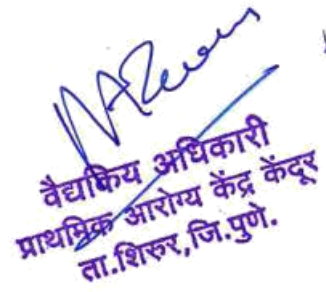 वैद्यकिय अधिकारी
प्राथमिक आरोग्य केंद्र केंदूर
ता.शिरुर,जि.पुणे.